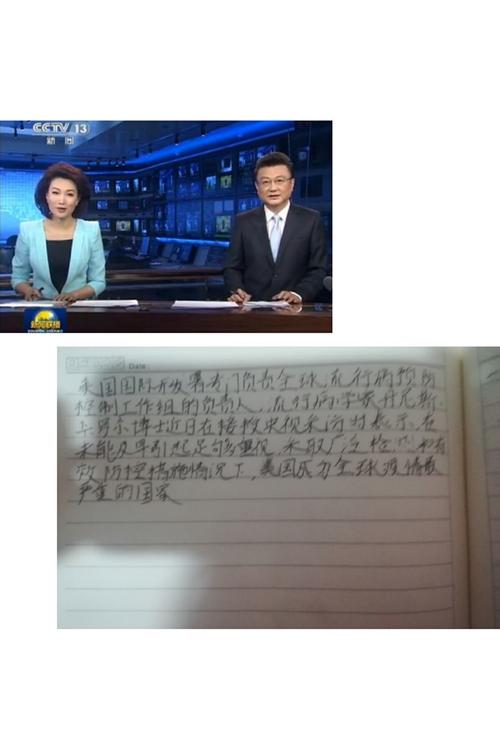 CCTV 13
新闻
新闻联播
Date:
美国国际开发署专门负责全球流行病预防
控制工作组的负责人,流行病学家丹尼斯·
卡罗尔博士近日在接受央视采访时表示,在
未能及早引起足够重视,采取广泛检测和有
效防控措施情况下,美国成为全球疫情最
严重的国家